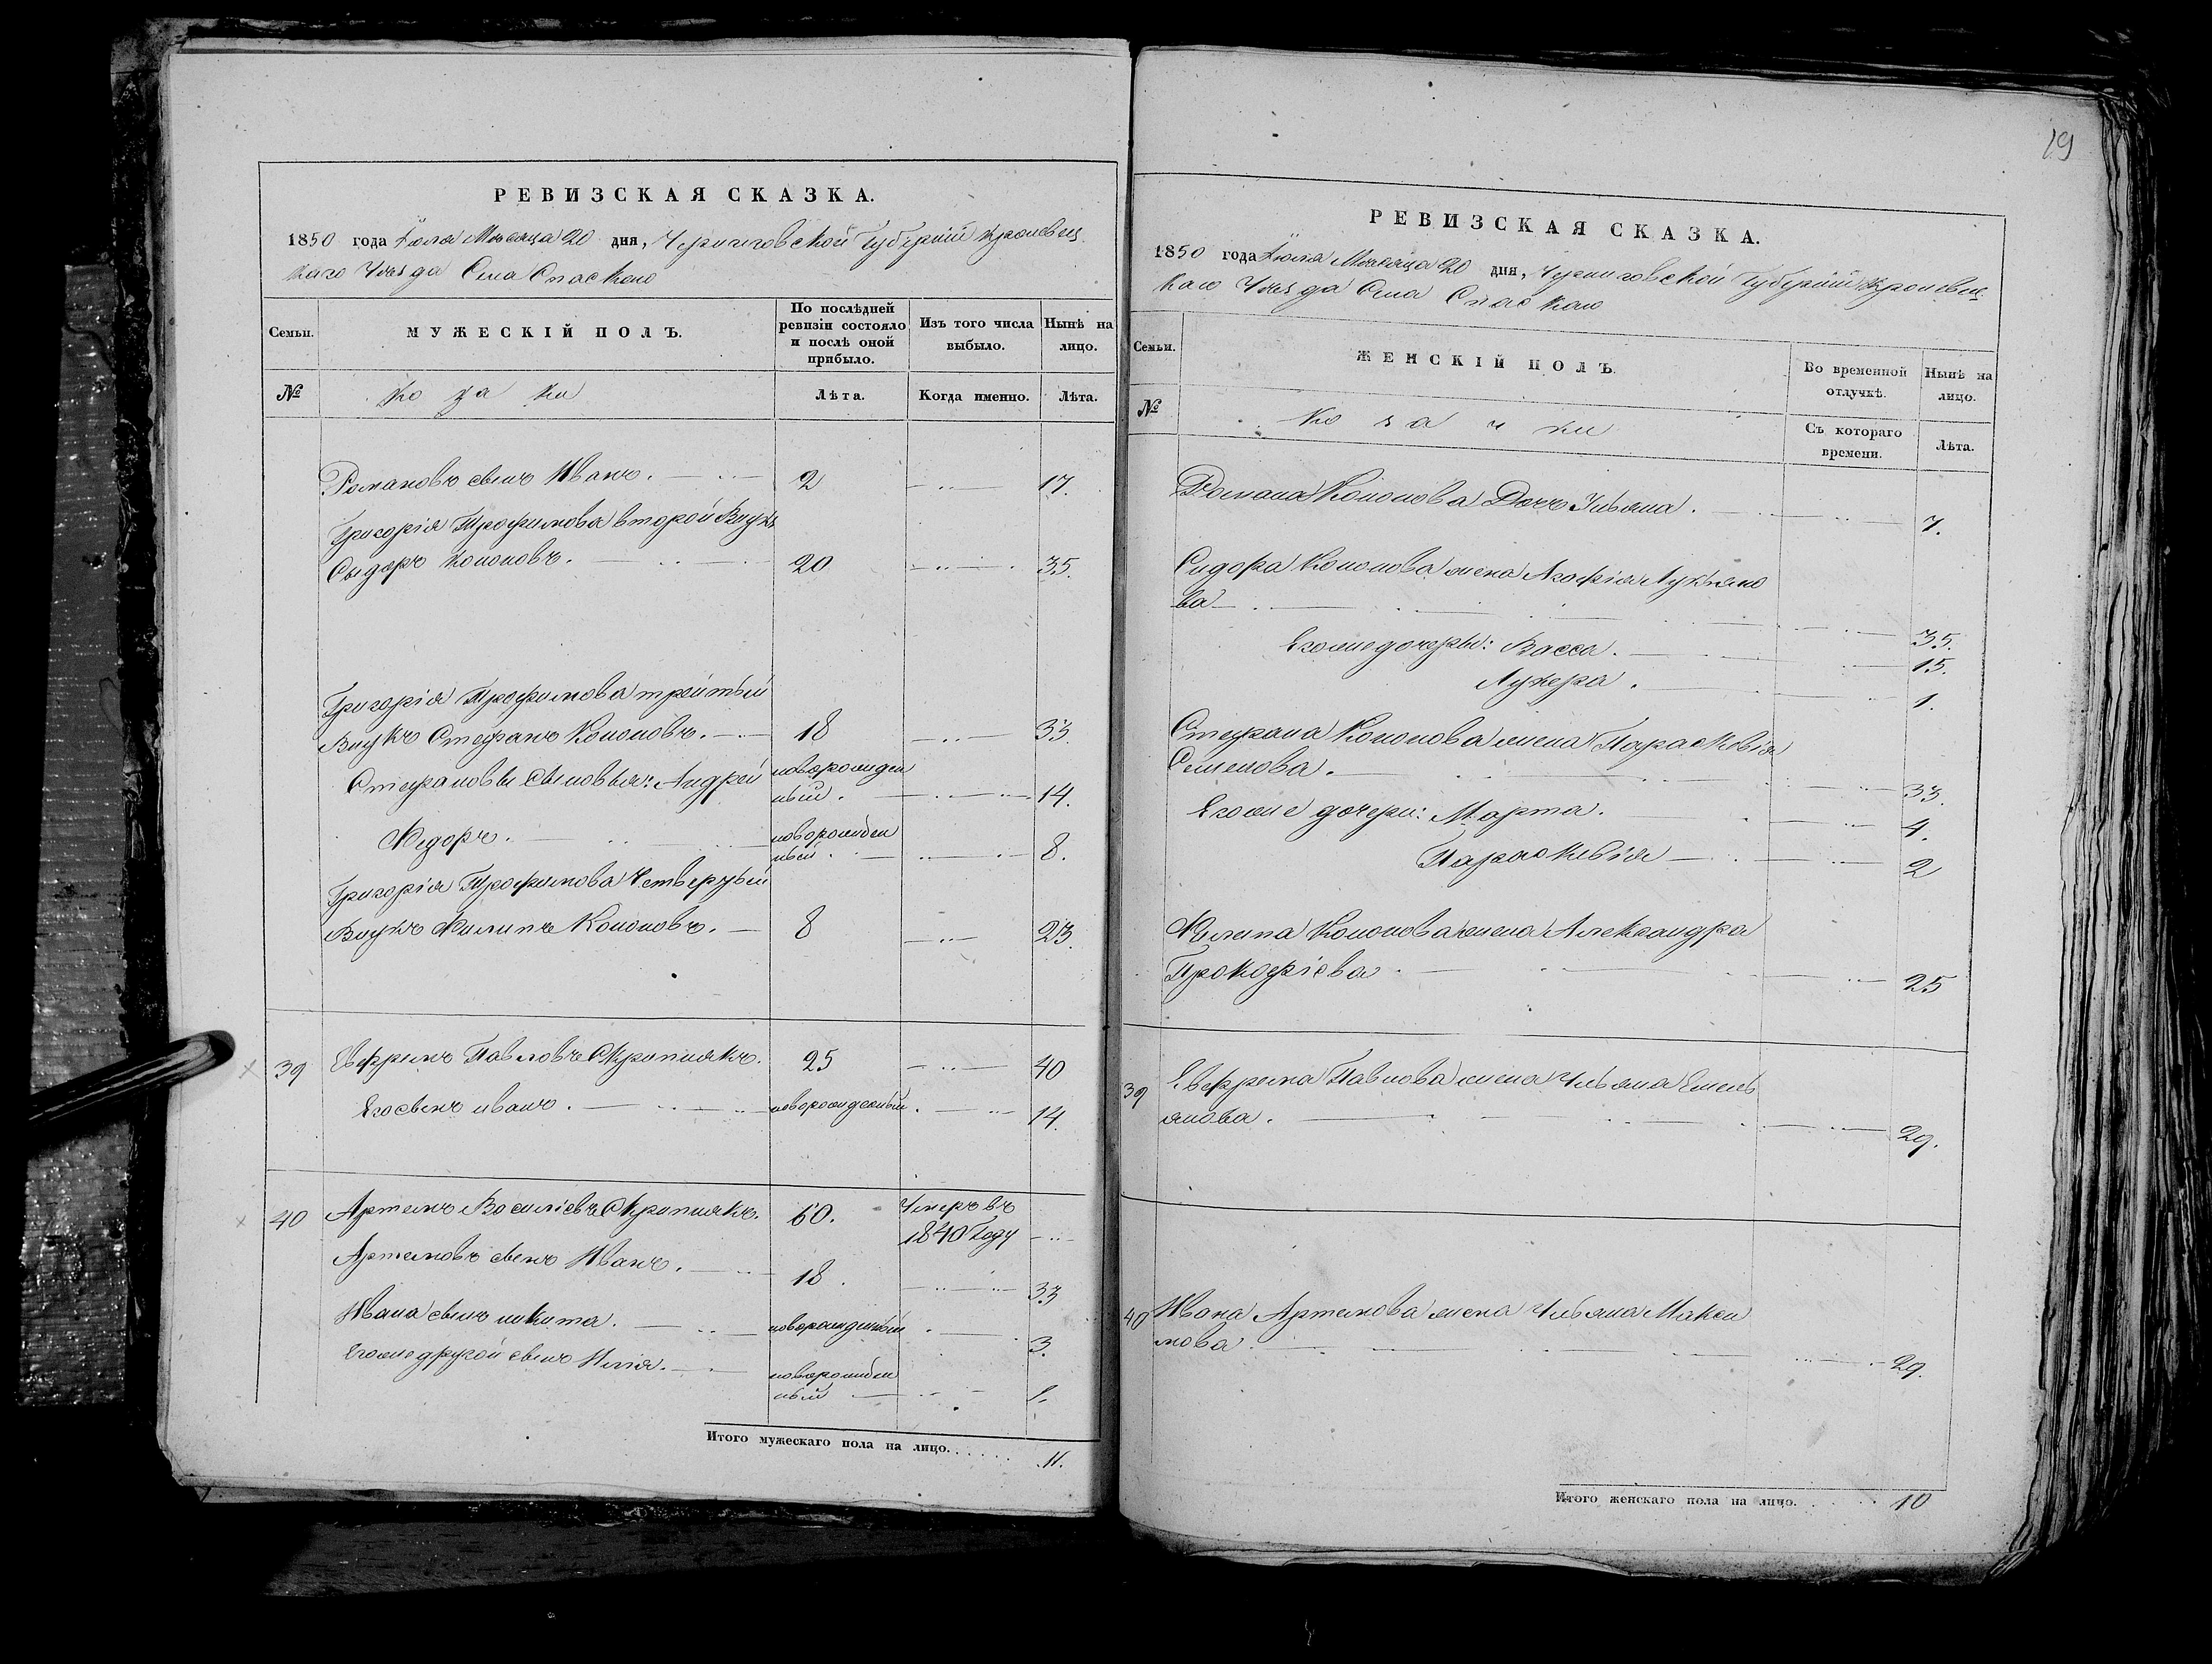 19
РЕВИЗСКАЯ СКАЗКА.
1850 года Іюля Месяца 20 дня, Черниговской Губерніи Кролевец
каго Уезда Села Спаскаго
Семьи.
МУЖЕСКІЙ ПОЛЪ.
По послѣдней ревизіи состояло и послѣ оной прибыло.
Изъ того числа выбыло.
Нынѣ на лицо.
№
козаки
Лѣта.
Когда именно.
Лѣта.
Романовъ сынъ Иванъ. 2 17.
Григорія Трофимова второй Внукъ
Сыдоръ Кононовъ. 20 35.
Григорія Трофимова третьій
Внукъ Стефанъ Кононовъ. 18 33.
Стефановы сыновья: Андрей новорожден
ный. 14.
Федоръ. новорожден
ный. 8.
Григорія Трофимова Четвертый
Внукъ Филипъ Кононовъ. 8 23.
39 Евфримъ Павловъ Скрипнякъ. 25 40
Его сынъ иванъ. новорожденный. 14.
40 Артемъ Василіевъ Скрипнякъ. 60. Умеръ въ
1840 Году
Артемовъ сынъ Иванъ. 18. 33
Ивана сынъ никита. новорожденный 3.
Егоже другой сынъ Илія. новорожден
ный 1.
Итого мужескаго пола на лицо...... 11.
РЕВИЗСКАЯ СКАЗКА.
1850 года Іюля Месяца 20 дня, Черниговской Губерніи Кролевец
каго Уезда Села Спаскаго
Семьи.
ЖЕНСКІЙ ПОЛЪ.
Во временной отлучкѣ.
Нынѣ на лицо.
№
козачки
Съ котораго времени.
Лѣта.
Романа Кононова Дочь Ульяна. 7.
Сидора Кононова жена Агафія Лукьяно
ва 35.
Егоже дочери: Васса. 15.
Лукера. 1.
Стефана Кононова жена Параскевія
Семенова. 33.
Егоже дочери: Марта. 4.
Параскевія 2
Филипа Кононова жена Александра
Прокофіева 25
39 Евфрима Павлова жена Ульяна Емель
янова. 29.
40 Ивана Артемова жена Ульяна Макси
мова. 29.
Итого женскаго пола на лицо...... 10